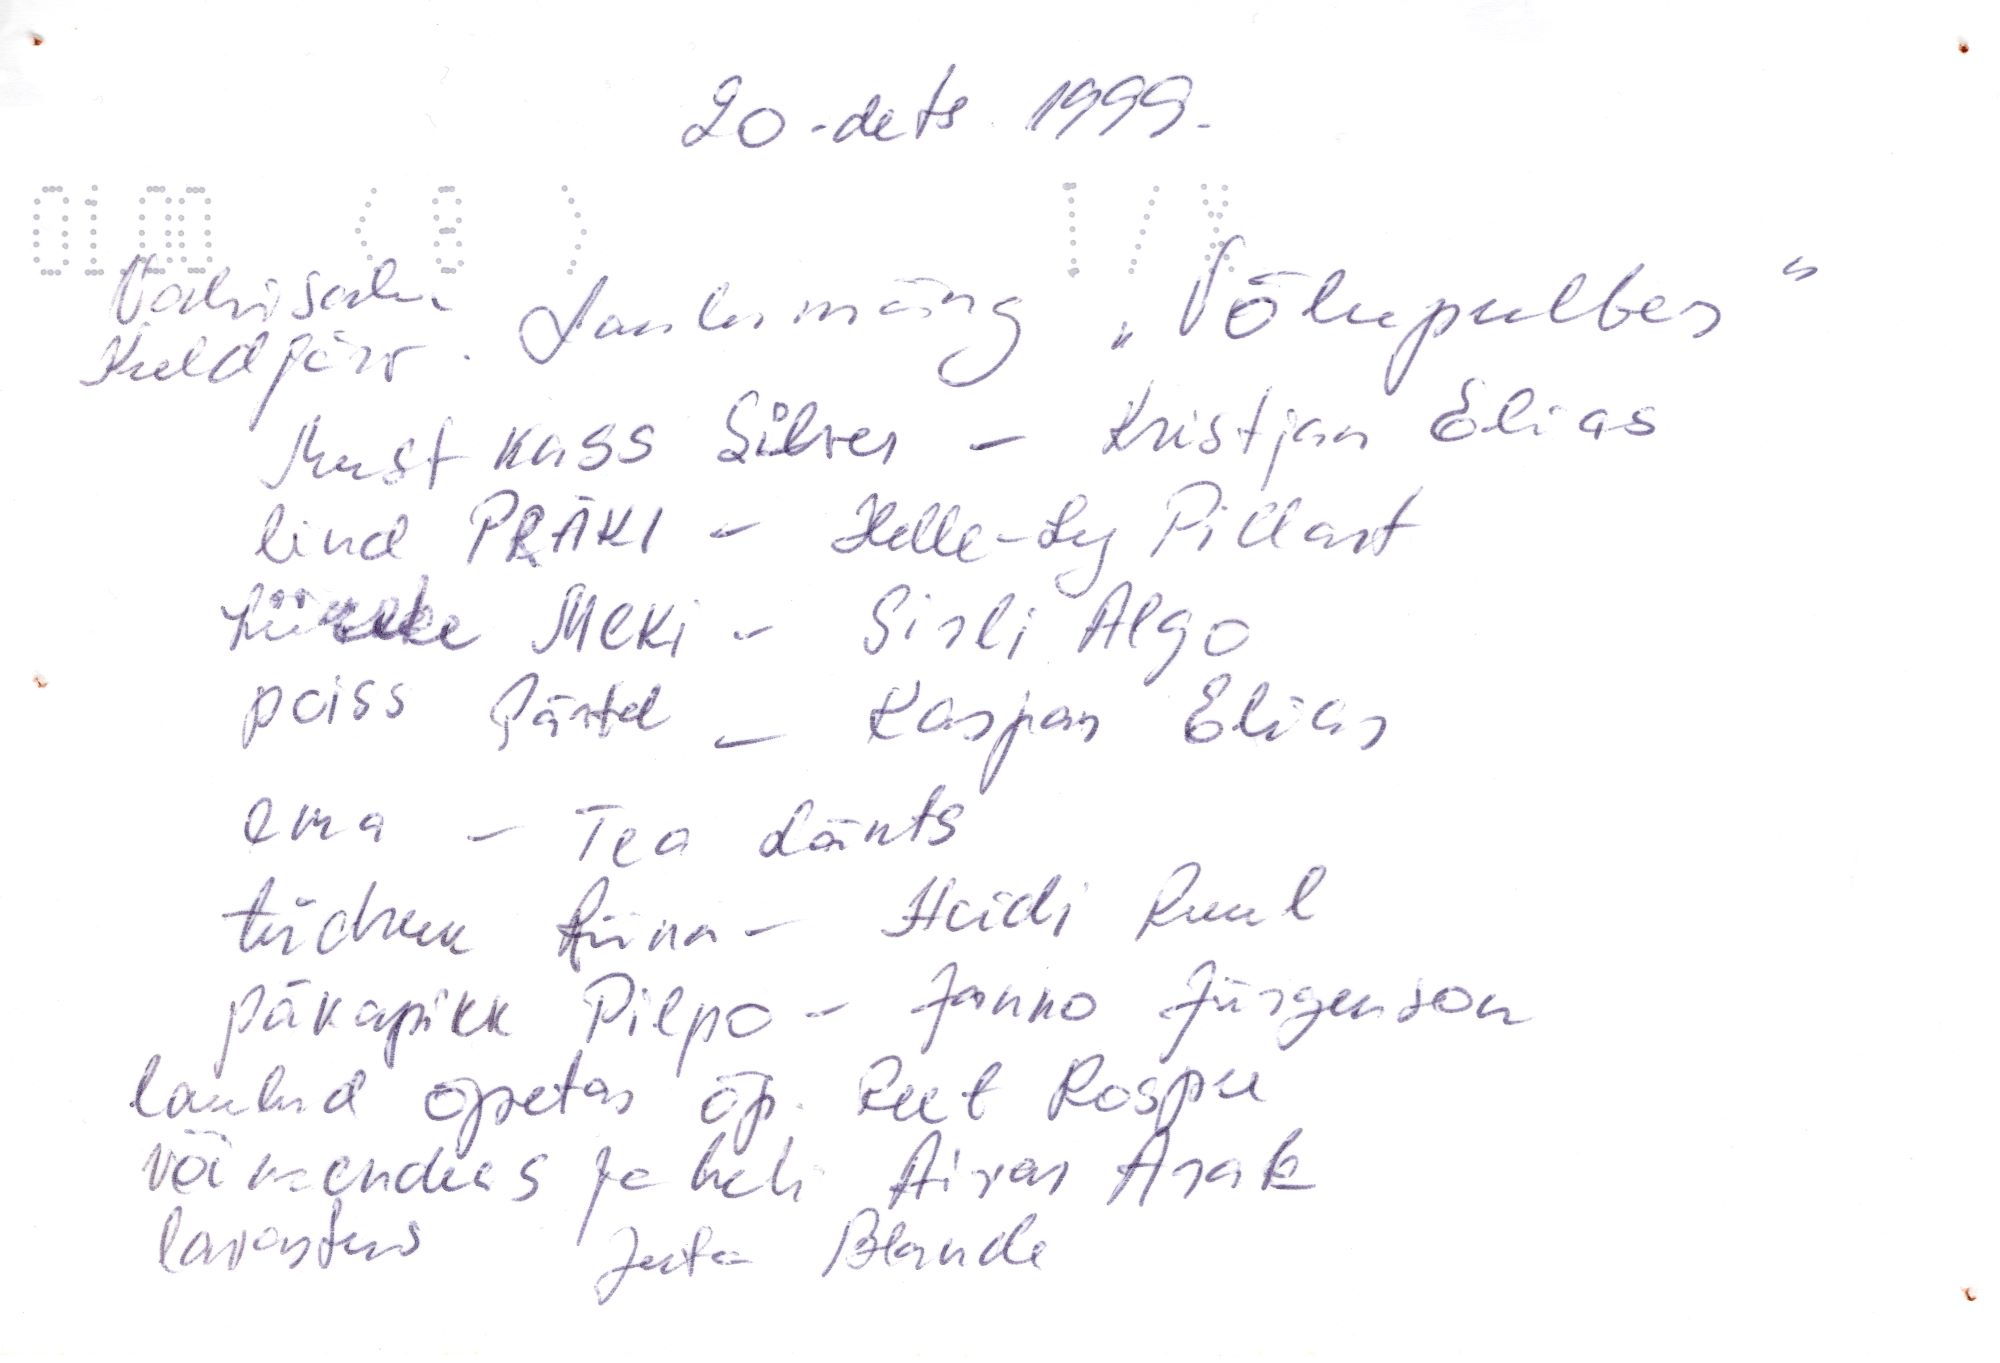 20. dets 1999.
Laulumäng „Võlupulber"
Kuldjärv.
Must kass Silver – Kristjan Elias
lind PRÄKI – Helle-Ly Pillart
MEKI – Sirli Algo
poiss Pärtel – Kaspar Elias
ema – Tea Länts
tüdruk Riina – Heidi Ruul
päkapikk Pilpo – Janno Jürgenson
laulud õpetas õp. Reet Rospu
ja heli Aivar Arak
lavastus Juta Blande